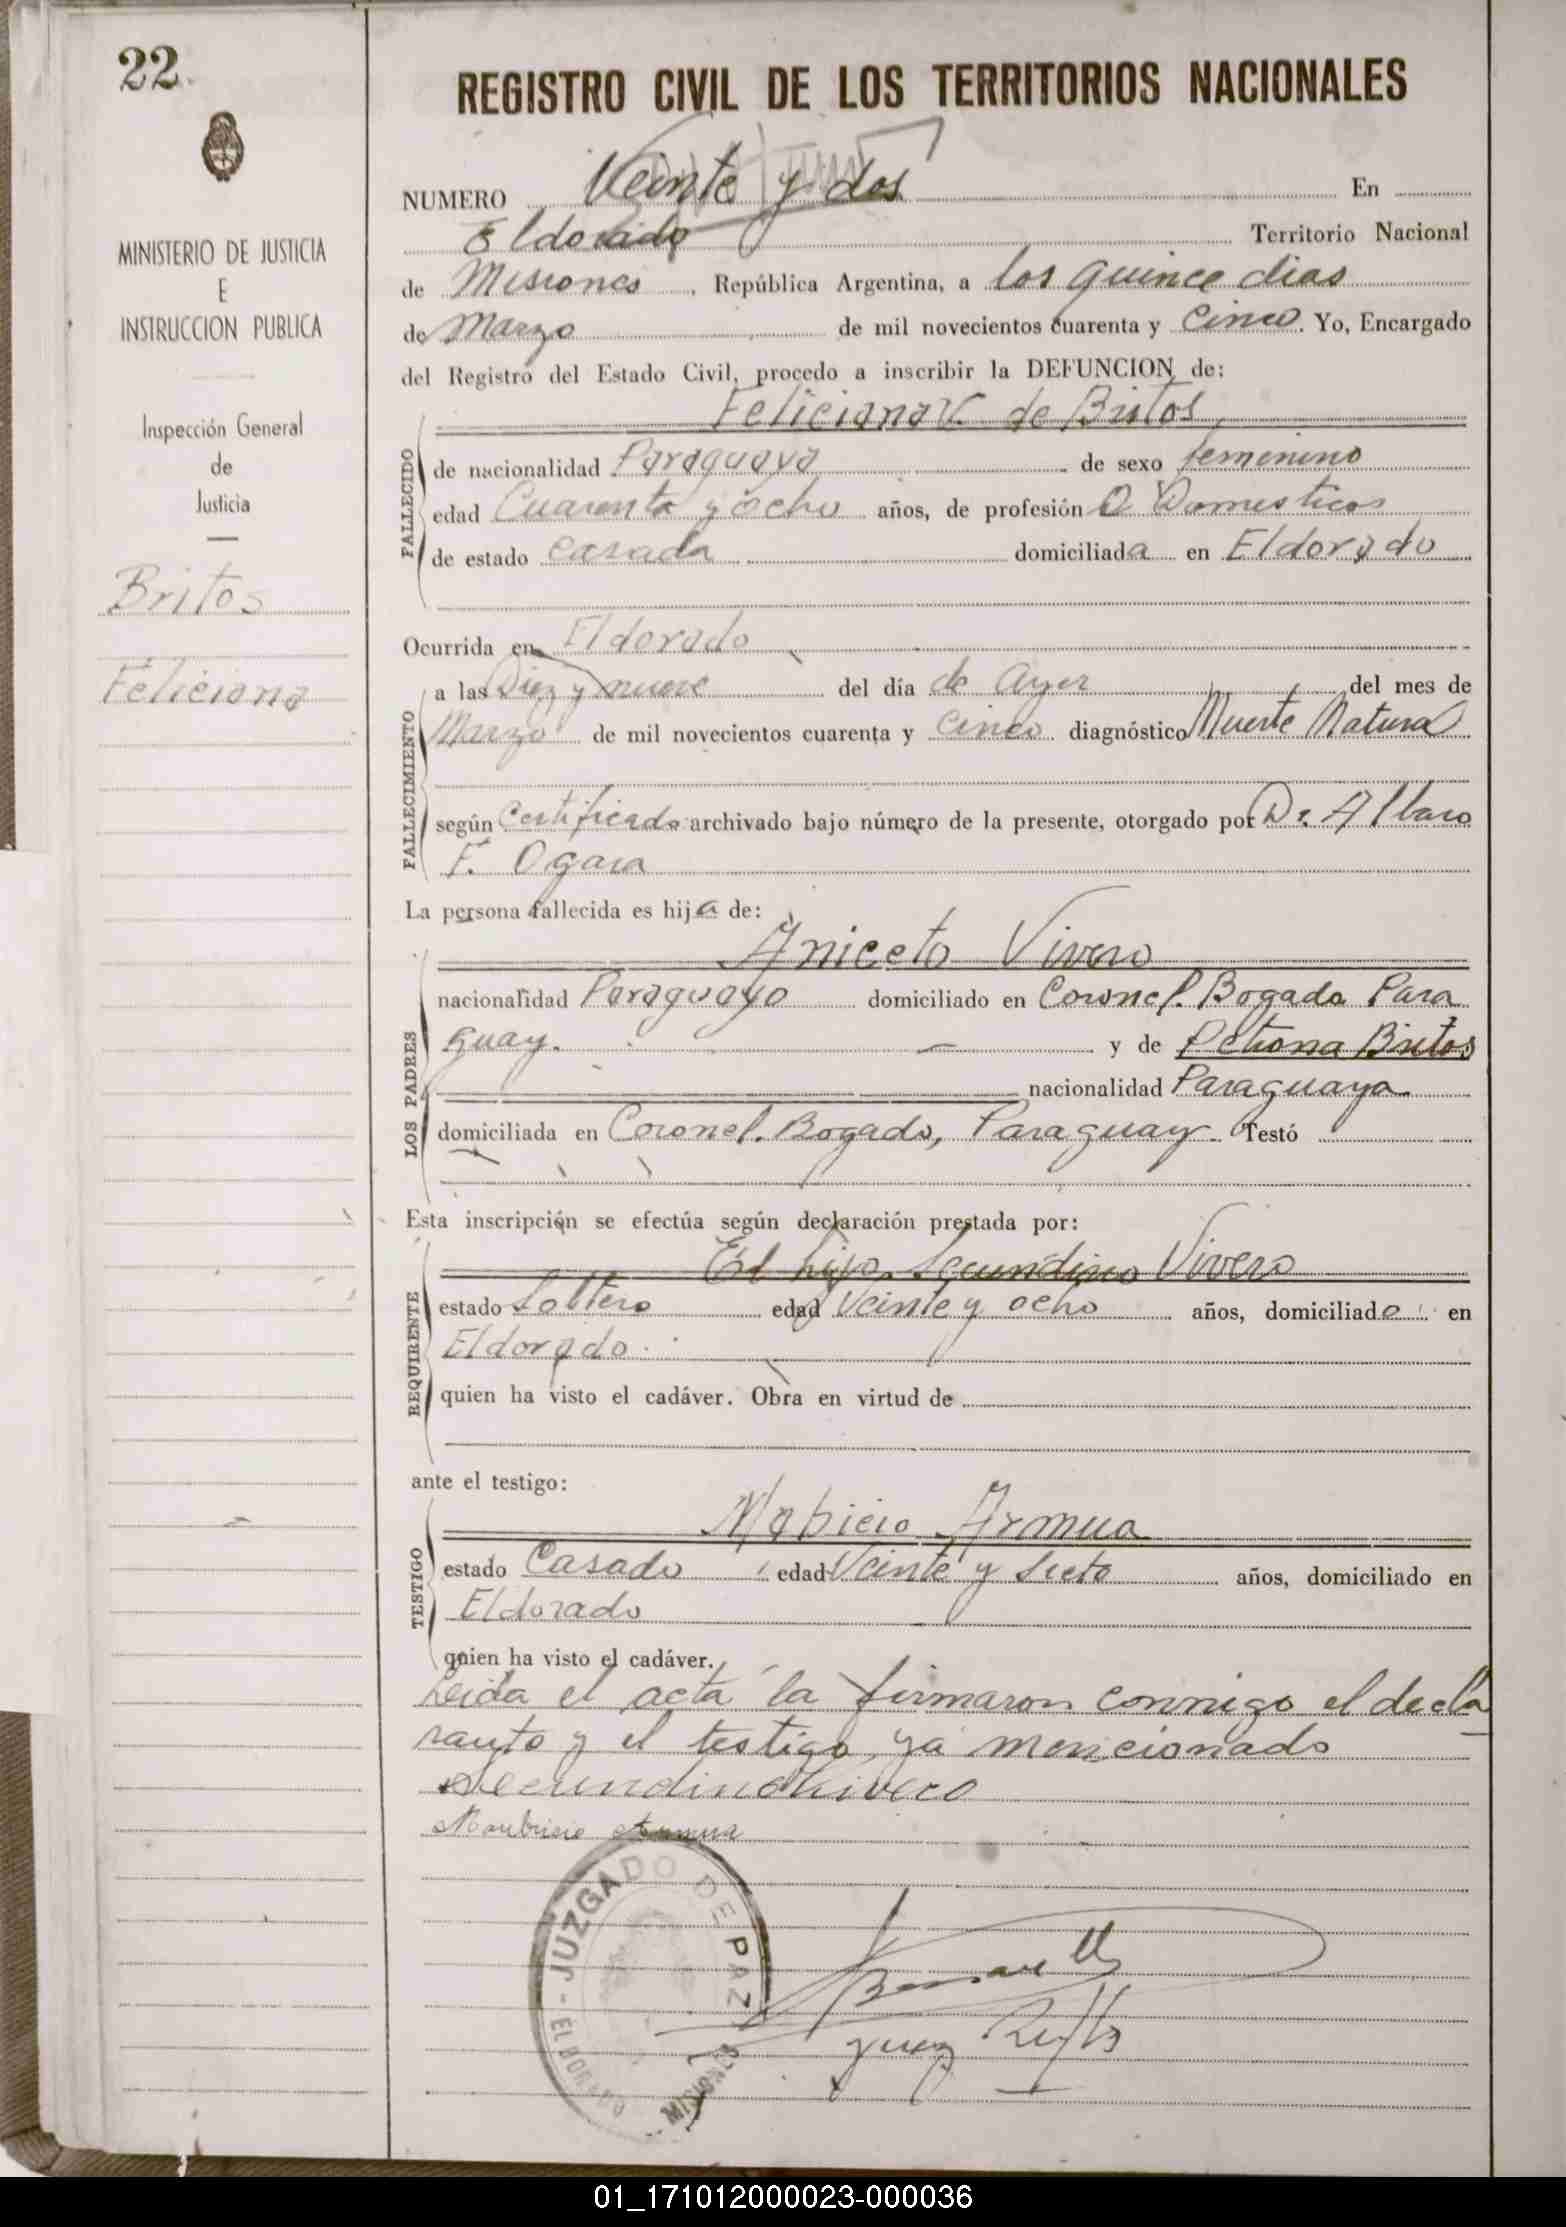 22.
MINISTERIO DE JUSTICIA
E
INSTRUCCION PUBLICA
Inspección General
de
Justicia
Britos
Feliciana
REGISTRO CIVIL DE LOS TERRITORIOS NACIONALES
NUMERO Veinte y dos En
Eldorado Territorio Nacional
de Misiones, República Argentina, a los quince dias
de Marzo de mil novecientos cuarenta y Cinco. Yo, Encargado
del Registro del Estado Civil, procedo a inscribir la DEFUNCION de:
Feliciana V. de Britos
FALLECIDO
de nacionalidad Paraguaya de sexo femenino
edad Cuarenta y ocho años, de profesión Q Domesticos
de estado casada domiciliada en Eldorado
Ocurrida en Eldorado
FALLECIMIENTO
a las Diez y nueve del día de Ayer del mes de
Marzo de mil novecientos cuarenta y Cinco diagnóstico Muerte Natural
según Certificado archivado bajo número de la presente, otorgado por Dr. Albaro
F. Ogara
La persona fallecida es hija de:
Aniceto Vivero
LOS PADRES
nacionalidad Paraguayo domiciliado en Coronel. Bogado Para
guay. — y de Petrona Britos
nacionalidad Paraguaya
domiciliada en Coronel. Bogado, Paraguay Testó
Esta inscripción se efectúa según declaración prestada por:
El hijo, Secundino Vivero
REQUIRENTE
estado Soltero edad Veinte y ocho años, domiciliado en
Eldorado.
quien ha visto el cadáver. Obra en virtud de
ante el testigo:
Mabricio Armua
TESTIGO
estado Casado edad Veinte y Siete años, domiciliado en
Eldorado
quien ha visto el cadáver.
Leida el acta la firmaron conmigo el decla
rante y el testigo ya mencionado
Secundino Vivero
Maubricio Armua
JUZGADO DE PAZ
- ELDORADO -
MISIONES
Juez
01_171012000023-000036